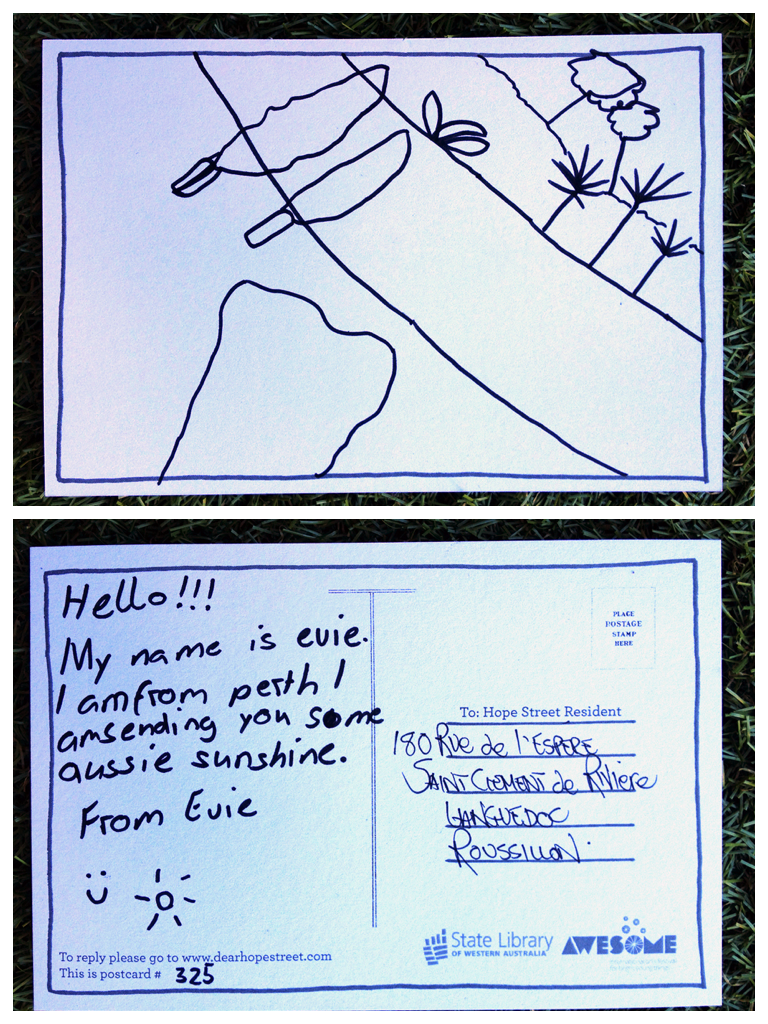 Hello!!!
My name is evie.
I am from perth I
am sending you some
aussie sunshine.
From Evie
To reply please go to www.dearhopestreet.com
This is postcard # 325
PLACE
POSTAGE
STAMP
HERE
To: Hope Street Resident
180 RUE de l'ESPERE
SAINT CLEMENT de Riviere
LANGUEDOC
ROUSSILLON.
State Library
OF WESTERN AUSTRALIA
AWESOME